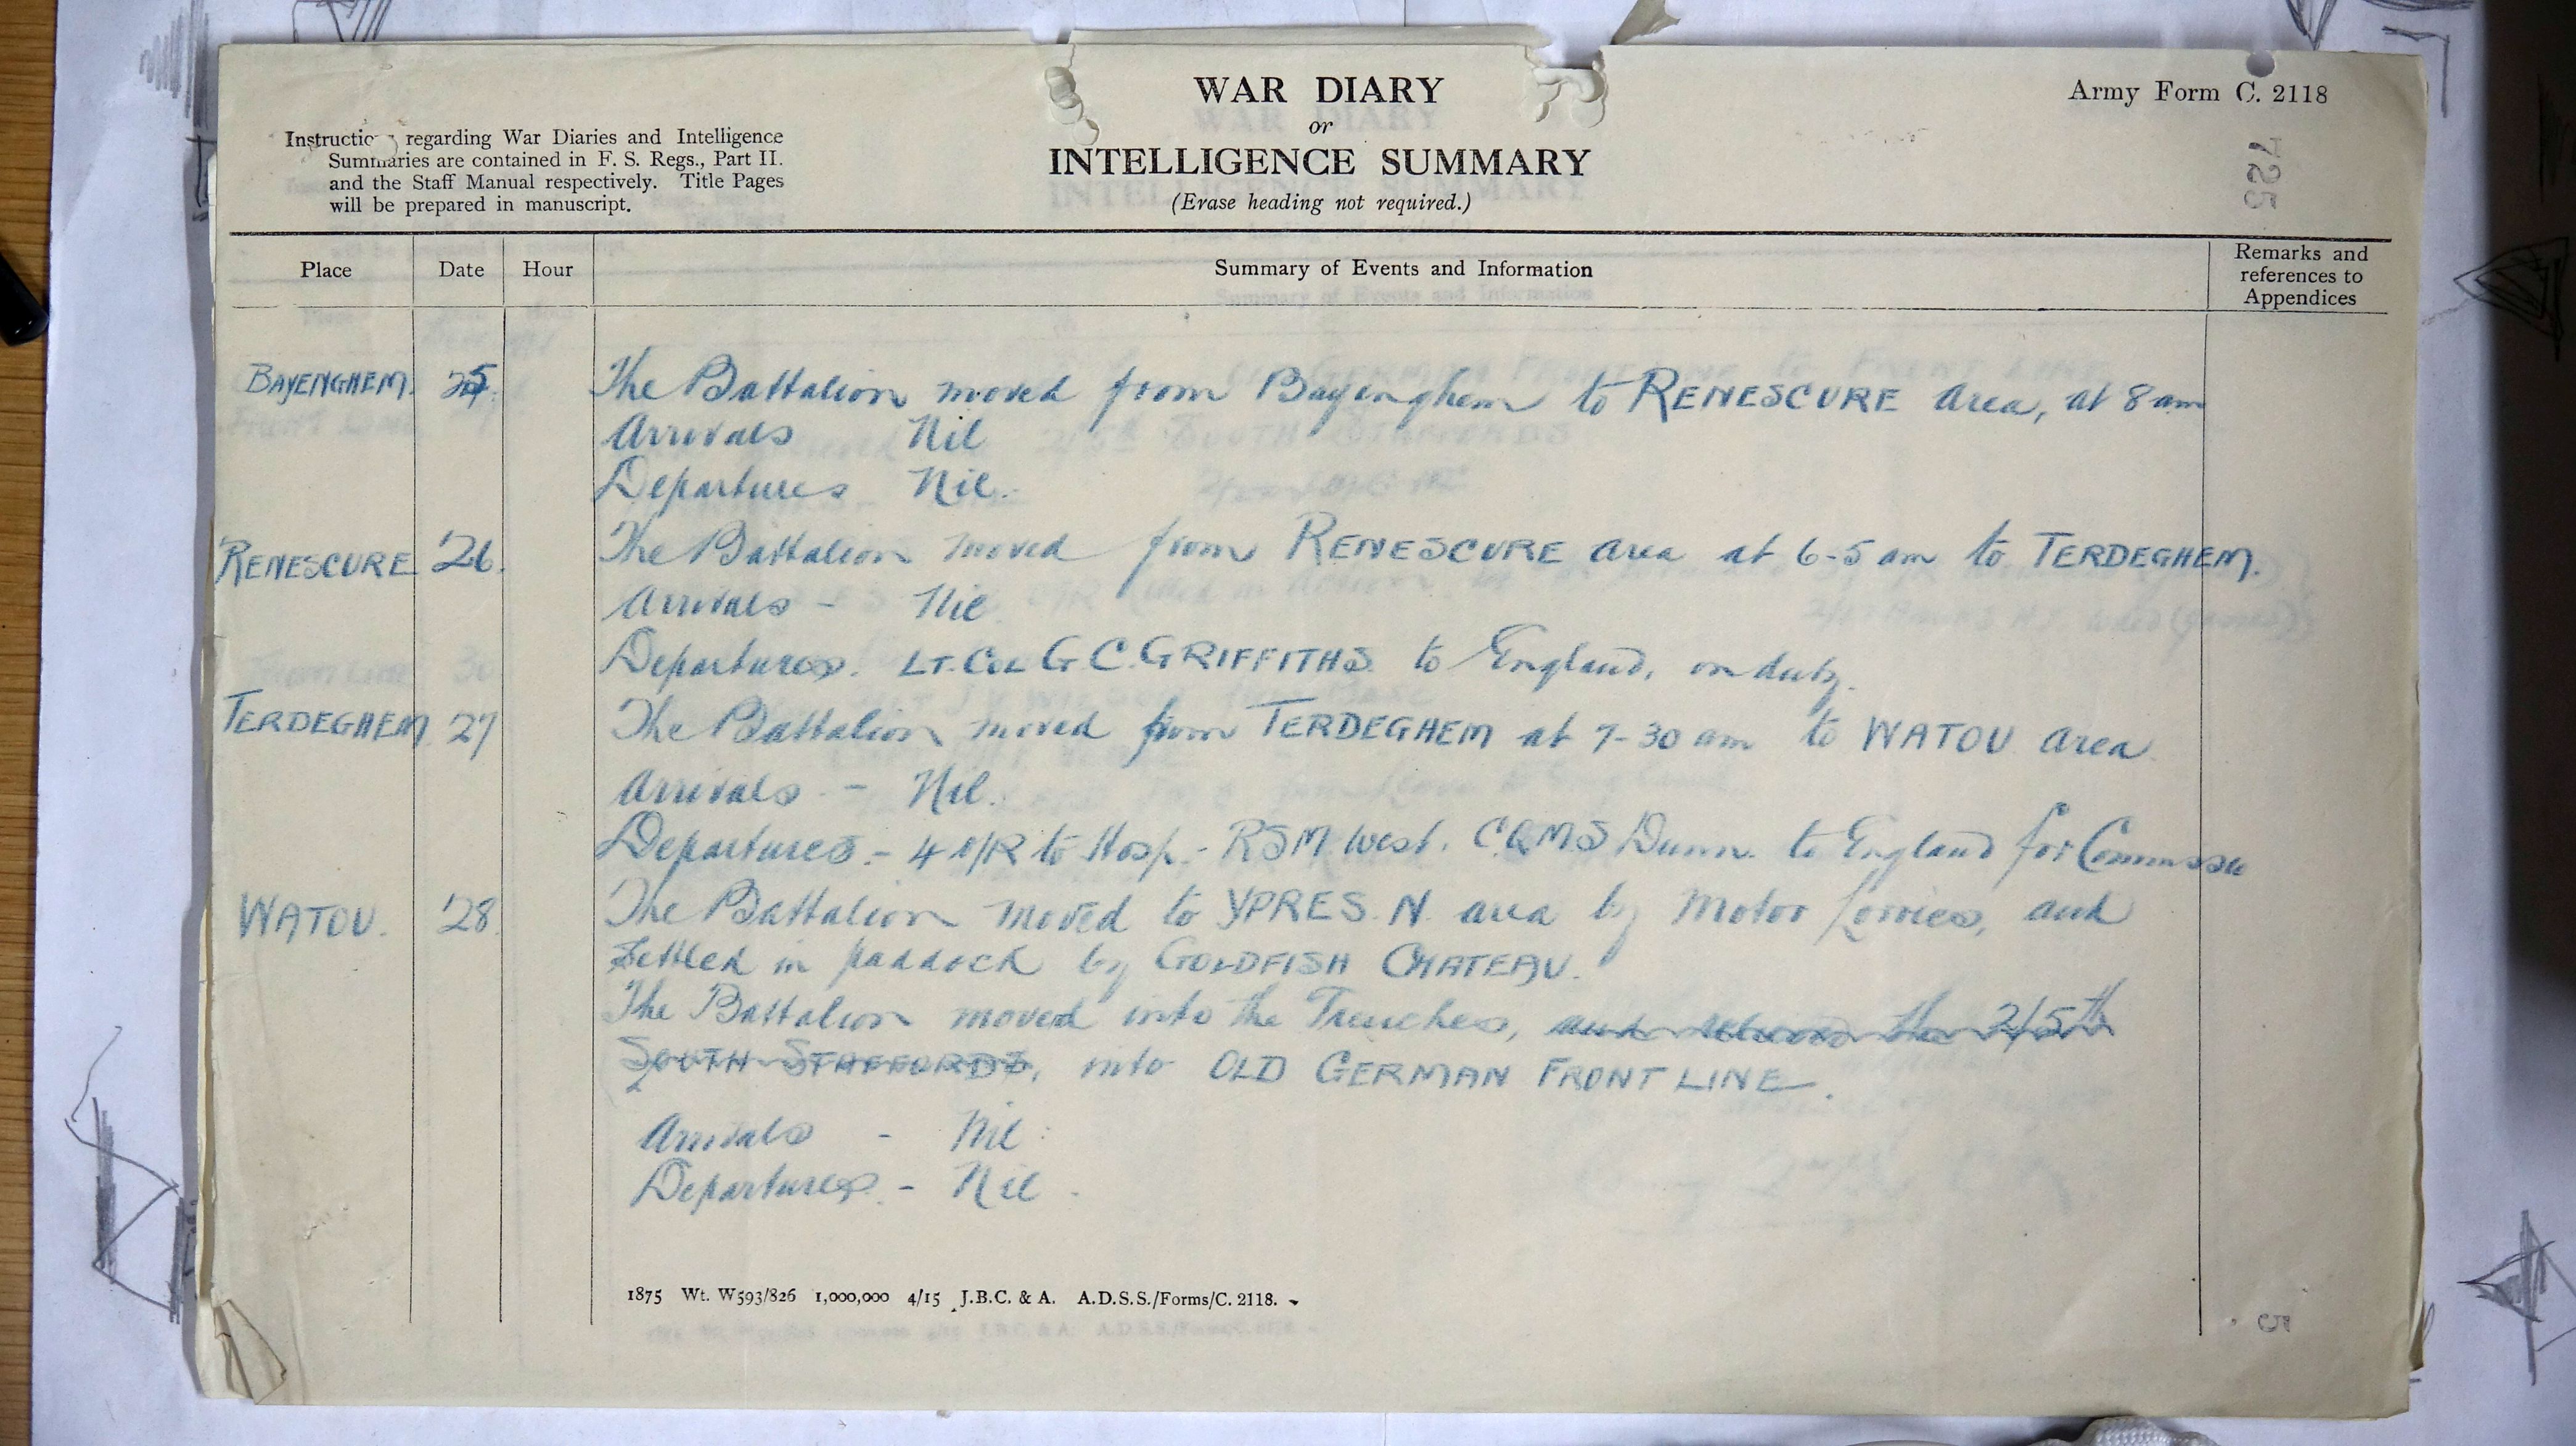 WAR DIARY
or
INTELLIGENCE SUMMARY
(Erase heading not required.)
Army Form C. 2118
725
Instructions regarding War Diaries and Intelligence
Summaries are contained in F. S. Regs., Part II.
and the Staff Manual respectively. Title Pages
will be prepared in manuscript.
Place Date Hour Summary of Events and Information Remarks and
references to
Appendices
BAYENGHEM. 25. The Battalion moved from Bayenghem to RENESCURE area, at 8 am
Arrivals Nil
Departures Nil.
RENESCURE 26. The Battalion moved from RENESCURE area at 6-5 am to TERDEGHEM.
Arrivals - Nil
Departures. LT. COL G.C. GRIFFITHS to England, on duty.
TERDEGHEM 27 The Battalion moved from TERDEGHEM at 7-30 am to WATOU area
Arrivals - Nil.
Departures. - 4 O/R to Hosp. - RSM West. CQMS Dunn to England for Commission
WATOU. 28. The Battalion moved to YPRES N. area by Motor Lorries, and
settled in paddock by GOLDFISH CHATEAU.
The Battalion moved into the Trenches, and relieved the 2/5th
SOUTH STAFFORDS, into OLD GERMAN FRONT LINE.
Arrivals - Nil
Departures - Nil.
1875 Wt. W593/826 1,000,000 4/15 J.B.C. & A. A.D.S.S./Forms/C. 2118.
5